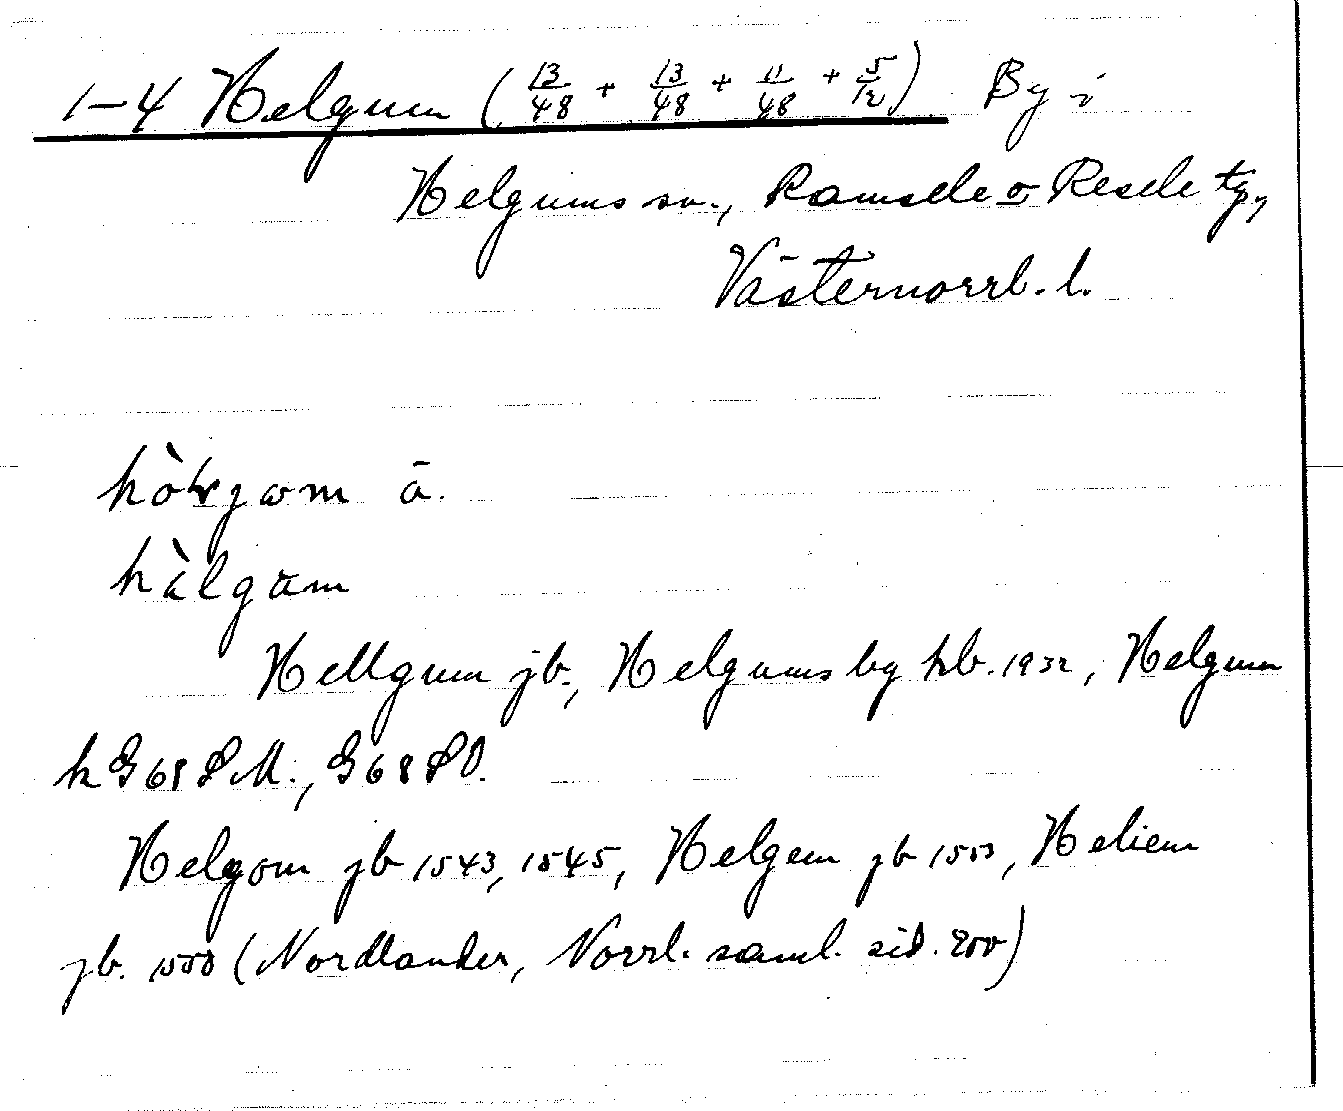 1–4 Helgum (13/48 + 13/48 + 11/48 + 5/12) By i
Helgums sn., Ramsele o Resele tg,
Västernorrl. l.
ā.
hàlgam
Hellgum jb., Helgums by hb. 1932, Helgum
k G 68 S M., G 68 S O.
Helgom jb 1543, 1545, Helgem jb 1553, Heliem
jb. (Nordlander, Norrl. saml. sid. 200)